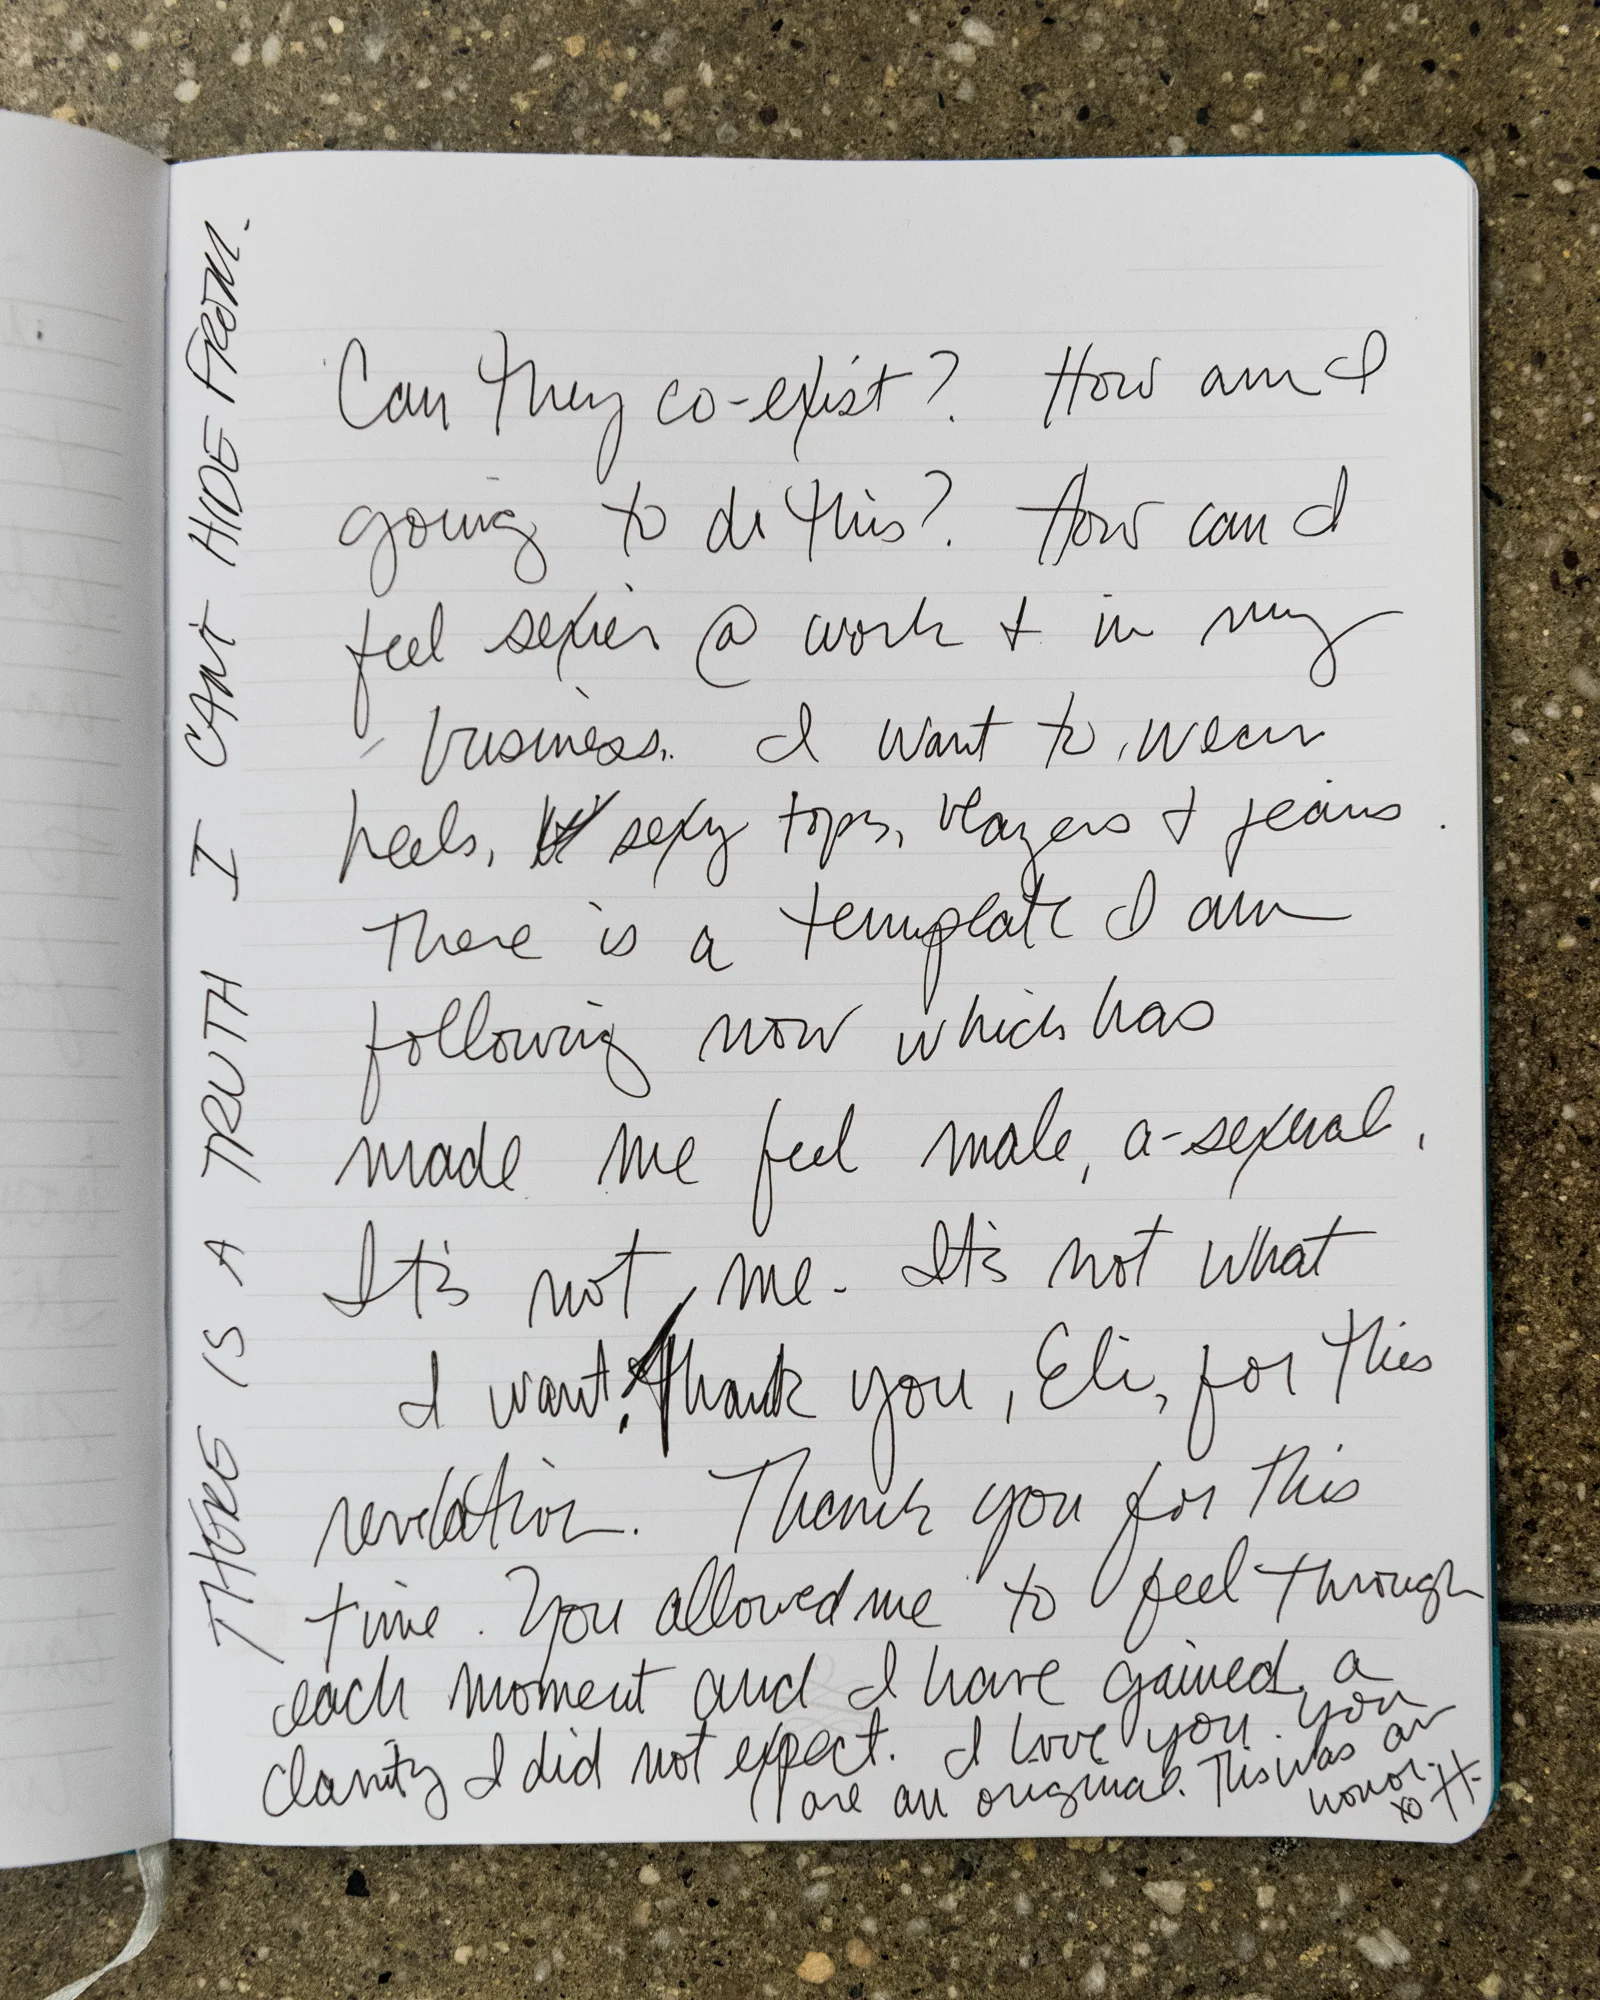 THERE IS A TRUTH I CAN'T HIDE FROM.
Can they co-exist? How am I
going to do this? How can I
feel sexier @ work + in my
business. I want to wear
heels, sexy tops, blazers + jeans.
There is a template I am
following now which has
made me feel male, a-sexual.
It's not me. It's not what
I want. Thank you, Eli, for this
revelation. Thank you for this
time. You allowed me to feel through
each moment and I have gained a
clarity I did not expect. I love you. You
are an original. This was an
honor.
xo H-